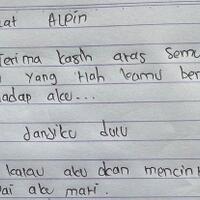 at ALPIN
Terima kasih atas Semu
yang tlah kamu ber
adap aku...
Janjiku dulu
kalau aku akan mencint
pai aku mati.